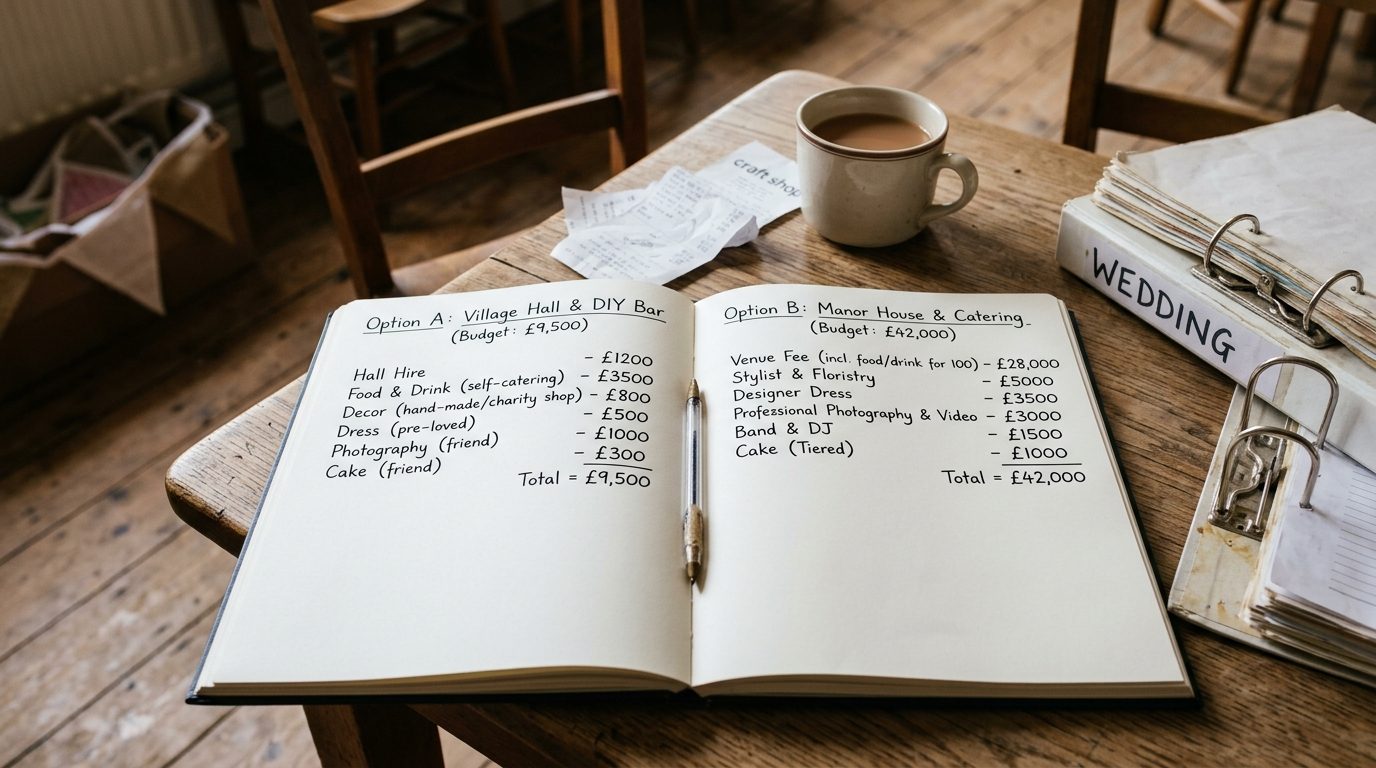 Option A: Village Hall & DIY Bar
(Budget: £9,500)
Hall Hire - £1200
Food & Drink (self-catering) - £3500
Decor (hand-made/charity shop) - £800
Dress (pre-loved) - £500
Photography (friend) - £1000
Cake (friend) - £300
Total = £9,500
Option B: Manor House & Catering
(Budget: £42,000)
Venue Fee (incl. food/drink for 100) - £28,000
Stylist & Floristry - £5000
Designer Dress - £3500
Professional Photography & Video - £3000
Band & DJ - £1500
Cake (Tiered) - £1000
Total = £42,000
craft shop
WEDDING